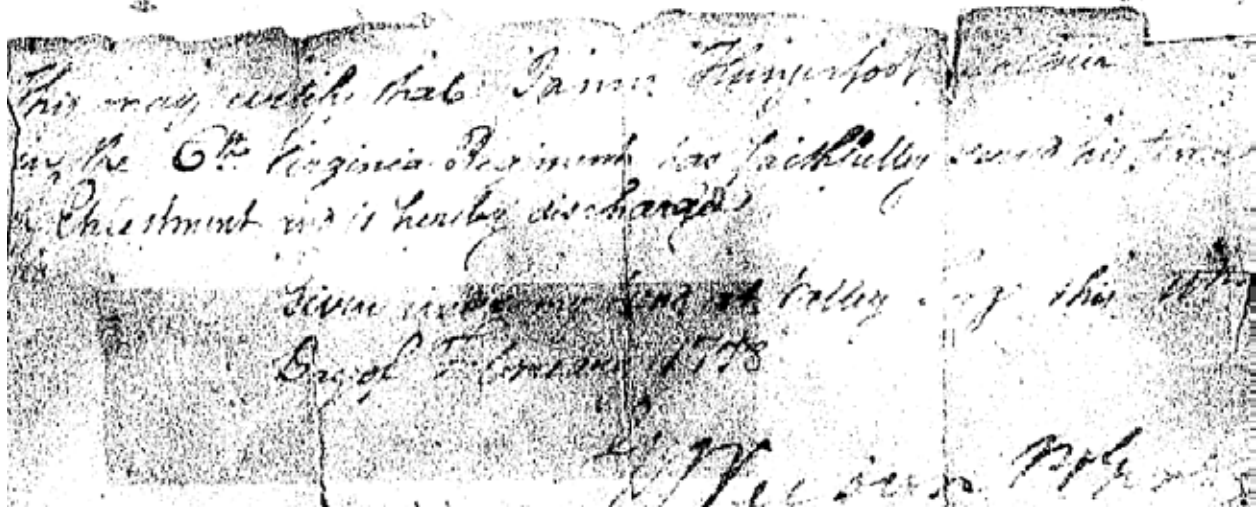 This may certify that James Hungerfoot
in the 6th Virginia Regiment has faithfully served his time
of Enlistment and is hereby discharged
Given under my hand at Valley Forge this
Day of February 1778